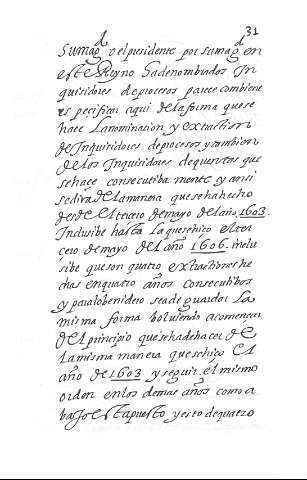 31
Sumagd o el presidente por sumagd en
este Reyno Sadenombrados In
quisidores deprocesos parece combiene
espécifican aqui delaforma quese
hace Lanominaçion y extraction
de Inquisidores deprocesos y tambien
delos Inquisidores dequentas que
sehace consecutiba mente y ansi
sedirá delamanera quesehahecho
desde el tercero demayo delaño 1603.
Inclusibe hasta laquesehiço elter
cero demayo del año 1606. inclu
sibe queson quatro extractiones he
chas enquatro años consecutibos
y paralobenidero seadeguardar la
misma forma bolviendo acomençar
del principio quesehadehacer de
Lamisma manera quesehiço el
año de 1603 y seguir el mismo
orden enlos demas años como a
baxo estapuesto yesto dequatro